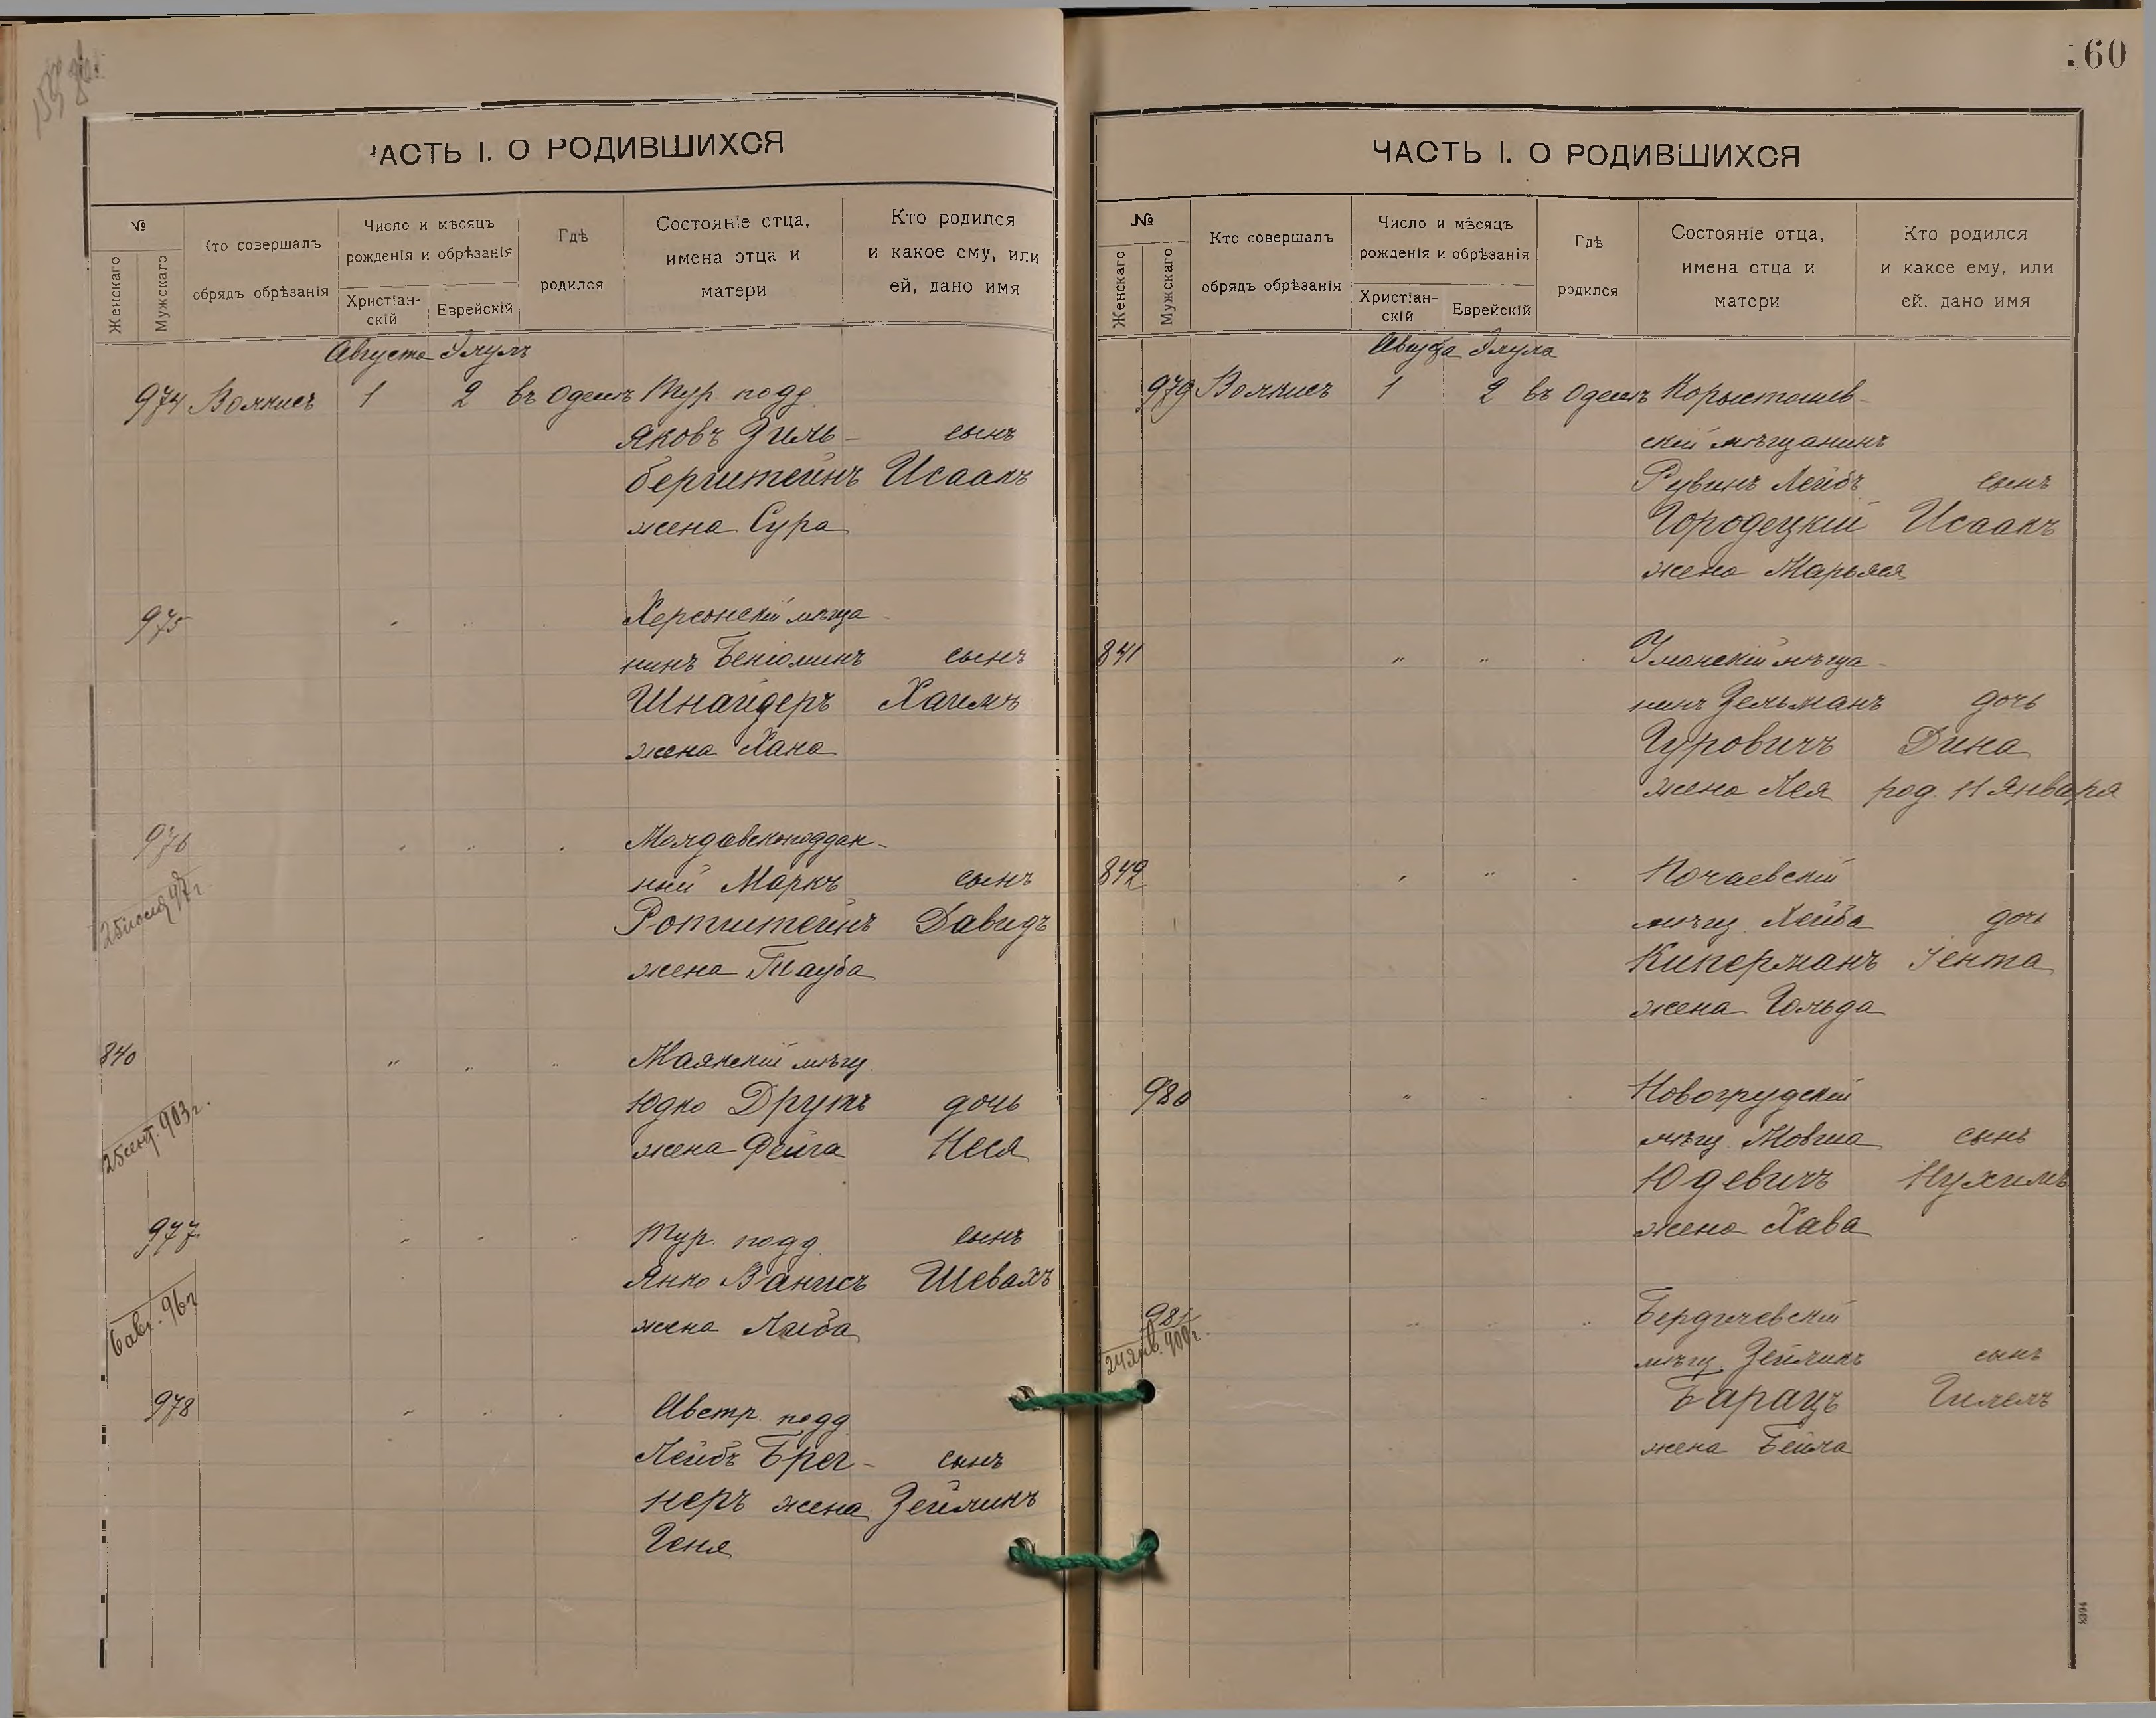 60
ЧАСТЬ I. О РОДИВШИХСЯ
№
Женскаго
Мужскаго
Кто совершалъ
обрядъ обрѣзанія
Число и мѣсяцъ
рожденія и обрѣзанія
Христіан-
скій
Еврейскій
Гдѣ
родился
Состояніе отца,
имена отца и
матери
Кто родился
и какое ему, или
ей, дано имя
Августа Элулъ
974 Волкисъ 1 2 въ Одессѣ Тур. подд.
Яковъ Зиль- сынъ
берштейнъ Исаакъ
жена Сура
975 Херсонскій мѣща-
нинъ Беніоминъ сынъ
Шнайдеръ Хаимъ
жена Хана
976 Молдавскоподдан-
ный Маркъ сынъ
25 іюля 97 г. Ротштейнъ Давидъ
жена Тауба
840 " " Маякскій мѣщ.
Юдко Друтъ дочь
25 сент. 903 г. жена Фейга Неся
977 Тур. подд. сынъ
Янко Ванисъ Шевахъ
6 авг. 96 г. жена Либа
978 Австр. подд.
Лейбъ Брег- сынъ
неръ жена Зейликъ
Геня
ЧАСТЬ I. О РОДИВШИХСЯ
№
Женскаго
Мужскаго
Кто совершалъ
обрядъ обрѣзанія
Число и мѣсяцъ
рожденія и обрѣзанія
Христіан-
скій
Еврейскій
Гдѣ
родился
Состояніе отца,
имена отца и
матери
Кто родился
и какое ему, или
ей, дано имя
Августа Элула
979 Волкисъ 1 2 въ Одессѣ Коростышев-
скій мѣщанинъ
Рувинъ Лейбъ сынъ
Городецкій Исаакъ
жена Марьяся
841 " " Уманскій мѣща-
нинъ Зельманъ дочь
Гуровичъ Дина
жена Лея род. 11 Января
842 " " Почаевскій
мѣщ. Лейба дочь
Киперманъ Іента
жена Гольда
980 " Новогрудскій
мѣщ. Мовша сынъ
Юдевичъ Нухимъ
жена Хава
981 Бердичевскій
24 янв. 900 г. мѣщ. Зейликъ сынъ
Барацъ Гилель
жена Бейла
8394